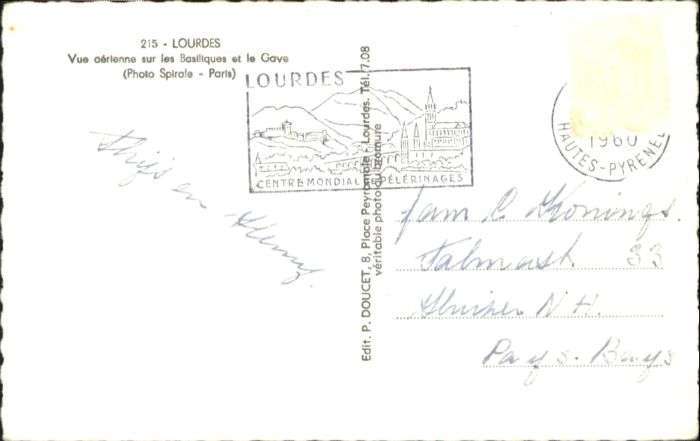 215 - LOURDES
Vue aérienne sur les Basiliques et le Gave
(Photo Spirale - Paris)
LOURDES
CENTRE MONDIAL DE PÉLERINAGES
1960
HAUTES-PYRÉNÉES
Edit. P. DOUCET, 8, Place Peyramale - Lourdes. Tél. 7.08
véritable photo au bromure
Thijs en
Fam C Konings.
33
N H.
Pays-Bays